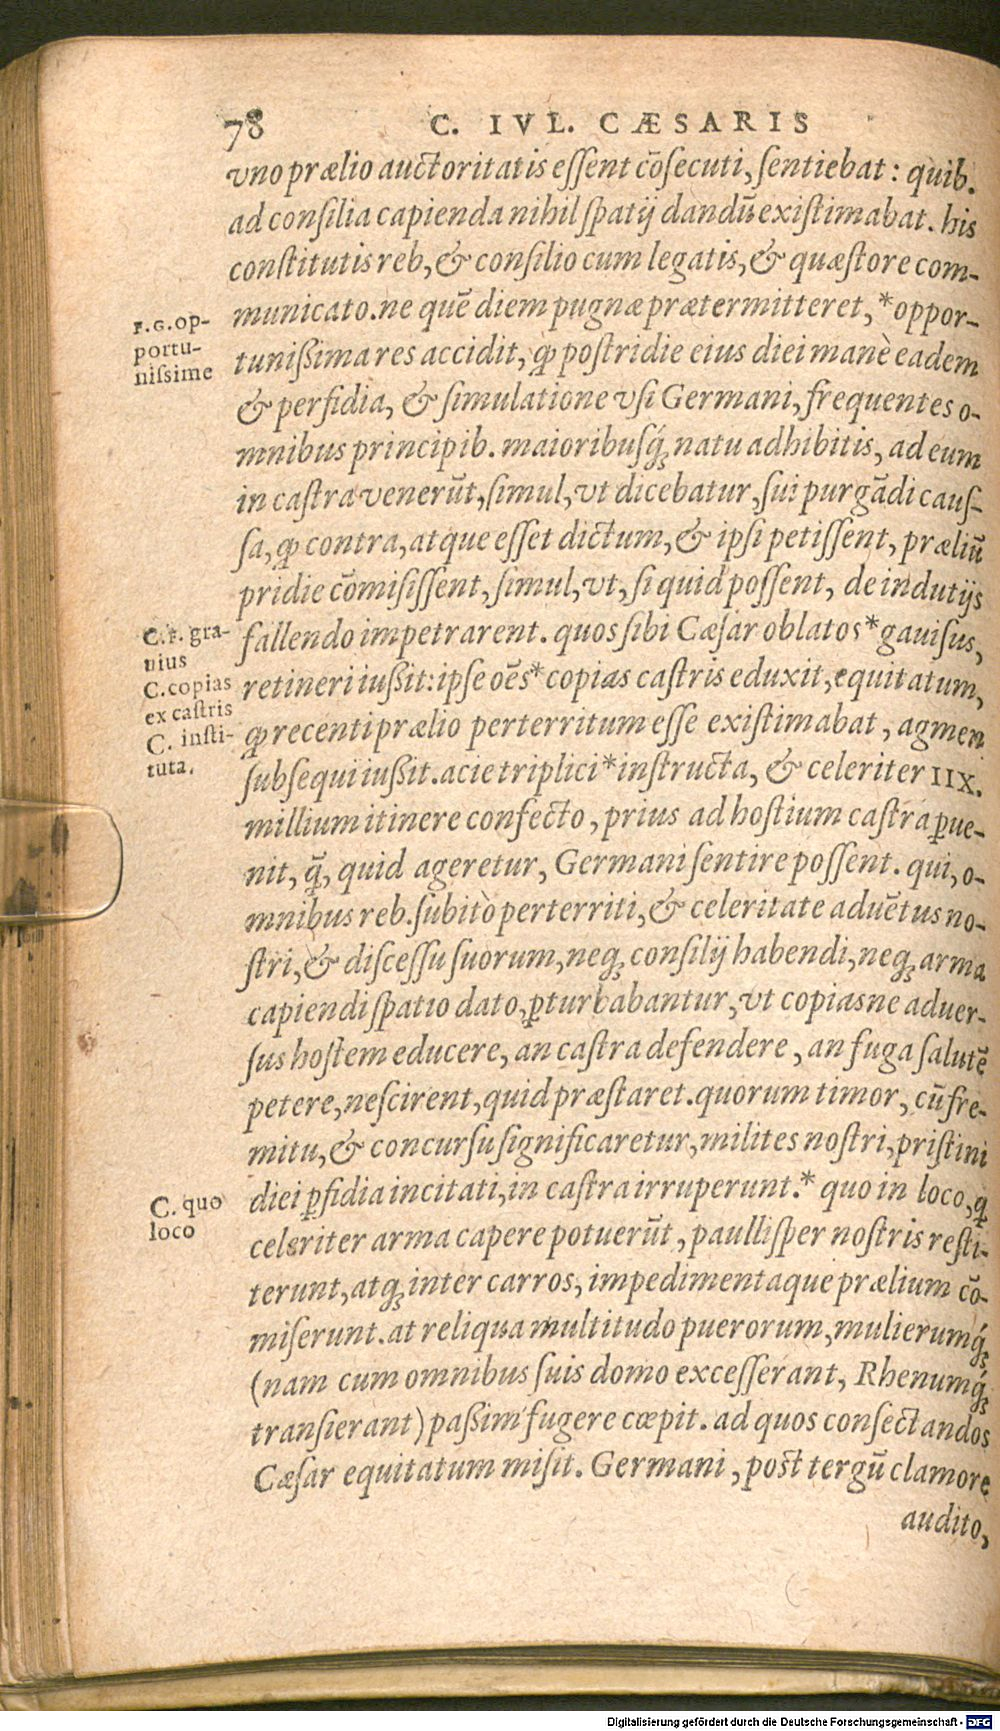 78 C. IVL. CÆSARIS
vno prælio auctoritatis essent cōsecuti, sentiebat: quib.
ad consilia capienda nihil spatij dandū existimabat. his
constitutis reb, & consilio cum legatis, & quæstore com-
municato. ne quē diem pugnæ prætermitteret, *oppor-
F.G. op-
portu-
nissime
tunißima res accidit, ꝙ postridie eius diei manè eadem
& perfidia, & simulatione vsi Germani, frequentes o-
mnibus principib. maioribusq́; natu adhibitis, ad eum
in castra venerūt, simul, vt dicebatur, sui purgādi caus-
sa, ꝙ contra, atque esset dictum, & ipsi petissent, præliū
pridie cōmisissent, simul, vt, si quid possent, de indutijs
fallendo impetrarent. quos sibi Cæsar oblatos *gauisus,
C.F. gra-
uius
C. copias
ex castris
C. insti-
tuta.
retineri iußit: ipse oēs* copias castris eduxit, equitatum,
ꝙ recenti prælio perterritum esse existimabat, agmen
subsequi iußit. acie triplici *instructa, & celeriter IIX.
millium itinere confecto, prius ad hostium castra ꝑue-
nit, q̄, quid ageretur, Germani sentire possent. qui, o-
mnibus reb. subitò perterriti, & celeritate aduētus no-
stri, & discessu suorum, neq; consilij habendi, neq; arma
capiendi spatio dato, ꝑturbabantur, vt copiasne aduer-
sus hostem educere, an castra defendere, an fuga salutē
petere, nescirent, quid præstaret. quorum timor, cū fre-
mitu, & concursu significaretur, milites nostri, pristini
diei ꝑfidia incitati, in castra irruperunt.* quo in loco, ꝗ
C. quo
loco
celeriter arma capere potuerūt, paullisper nostris resti-
terunt, atq; inter carros, impedimentaque prælium cō-
miserunt. at reliqua multitudo puerorum, mulierumq́;
(nam cum omnibus suis domo excesserant, Rhenumq́;
transierant) paßim fugere cœpit. ad quos consectandos
Cæsar equitatum misit. Germani, post tergū clamore
audito,
Digitalisierung gefördert durch die Deutsche Forschungsgemeinschaft - DFG